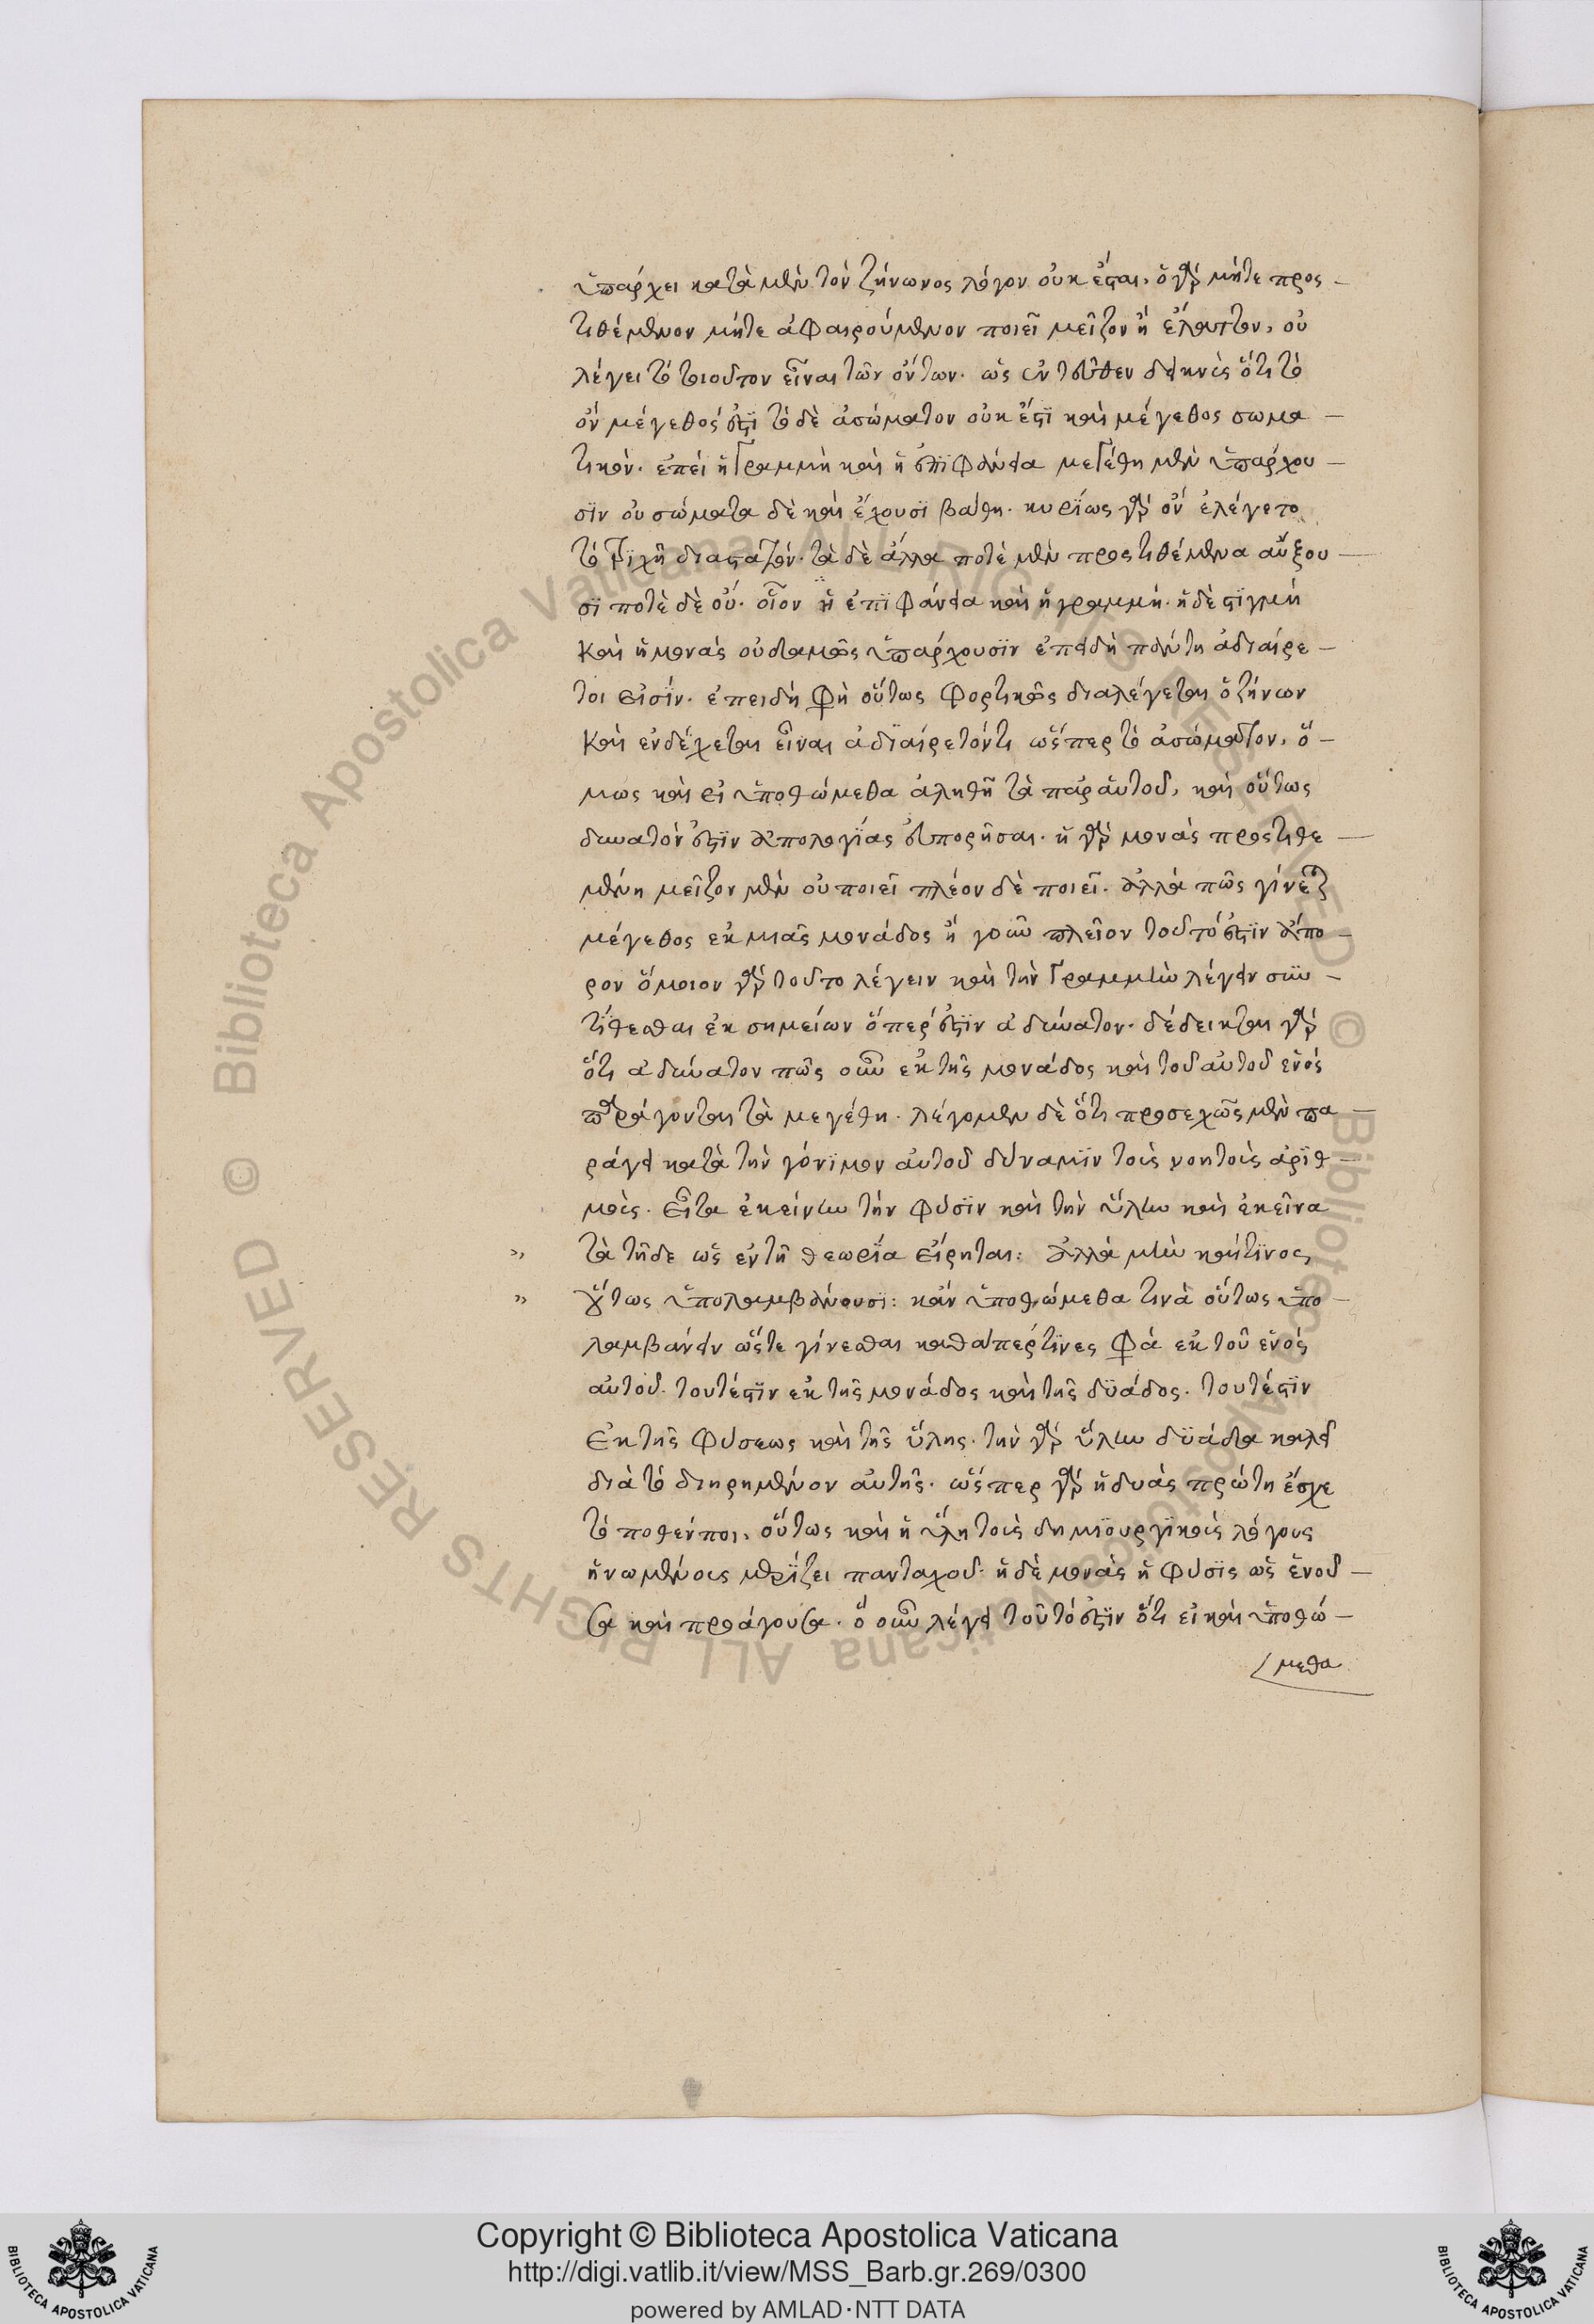 ὑπάρχει κατὰ μὲν τὸν ζήνωνος λόγον οὐκ ἔσται, ὃ γὰρ μήτε προσ-
τιθέμενον μήτε ἀφαιρούμενον ποιεῖ μεῖζον ἢ ἔλαττον, οὐ
λέγει τὸ τοιοῦτον εἶναι τῶν ὄντων. ὡς ἐντεῦθεν δεικνὺς ὅτι τὸ
ὂν μέγεθός ἐστι τὸ δὲ ἀσώματον οὐκ ἔστι καὶ μέγεθος σωμα-
τικόν. ἐπεὶ ἡ γραμμὴ καὶ ἡ ἐπιφάνεια μεγέθη μὲν ὑπάρχου-
σιν οὐ σώματα δὲ καὶ ἔχουσι βάθη. κυρίως γὰρ ὂν ἐλέγετο
τὸ τριχῆ διαστατόν. τὰ δὲ ἄλλα ποτὲ μὲν προστιθέμενα αὔξου-
σι ποτὲ δὲ οὔ. οἷον ἡ ἐπιφάνεια καὶ ἡ γραμμή. ἡ δὲ στιγμὴ
καὶ ἡ μονὰς οὐδαμῶς ὑπάρχουσιν ἐπειδὴ πάντη ἀδιαίρε-
τοι εἰσίν. ἐπειδὴ φὴ οὕτως φορτικῶς διαλέγεται ὁ ζήνων
καὶ ἐνδέχεται εἶναι ἀδιαίρετόν τι ὥσπερ τὸ ἀσώματον, ὅ-
μως καὶ εἰ ὑποθώμεθα ἀληθῆ τὰ παρ αὐτοῦ, καὶ οὕτως
δυνατόν ἐστιν ἀπολογίας εὐπορῆσαι. ἡ γὰρ μονὰς προστιθε-
μένη μεῖζον μὲν οὐ ποιεῖ πλέον δὲ ποιεῖ. ἀλλὰ πῶς γίνεται
μέγεθος ἐκ μιᾶς μονάδος ἢ γοῦν πλεῖον τοῦτό ἐστιν ἄπο-
ρον ὅμοιον γὰρ τοῦτο λέγειν καὶ τὴν γραμμὴν λέγειν συν-
τίθεσθαι ἐκ σημείων ὅπερ ἐστὶν ἀδύνατον. δέδεικται γὰρ
ὅτι ἀδύνατον πῶς οὖν ἐκ τῆς μονάδος καὶ τοῦ αὐτοῦ ἑνὸς
παράγονται τὰ μεγέθη. λέγομεν δὲ ὅτι προσεχῶς μὲν πα-
ράγει κατὰ τὴν γόνιμον αὐτοῦ δύναμιν τοῖς νοητοῖς ἀριθ-
μοῖς. εἶτα ἐκείνην τὴν φύσιν καὶ τὴν ὕλην καὶ ἐκεῖνα
» τὰ τῆδε ὡς ἐν τῇ θεωρία εἴρηται: ἀλλὰ μὴν καί τινος
» οὕτως ὑπολαμβάνουσι: κἂν ὑποθώμεθα τινὰ οὕτως ὑπο-
λαμβάνειν ὥστε γίνεσθαι καθάπερ τινες φὰ ἐκ τοῦ ἑνὸς
αὐτοῦ. τουτέστιν ἐκ τῆς μονάδος καὶ τῆς δυάδος. τουτέστιν
ἐκ τῆς φύσεως καὶ τῆς ὕλης. τὴν γὰρ ὕλην δυάδα καλεῖ
διὰ τὸ διῃρημένον αὐτῆς. ὥσπερ γὰρ ἡ δυὰς πρώτη ἔσχε
τὸ ποθέν ποι, οὕτως καὶ ἡ ὕλη τοῖς δημιουργικοῖς λόγους
ἡνωμένοις μερίζει πανταχοῦ. ἡ δὲ μονὰς ἡ φύσις ὡς ἑνοῦ-
σα καὶ προάγουσα. ὃ οὖν λέγει τοῦτό ἐστιν ὅτι εἰ καὶ ὑποθώ-
μεθα
© Biblioteca Apostolica Vaticana ALL RIGHTS RESERVED © Biblioteca Apostolica Vaticana ALL RIGHTS RESERVED
Copyright © Biblioteca Apostolica Vaticana
http://digi.vatlib.it/view/MSS_Barb.gr.269/0300
powered by AMLAD·NTT DATA
BIBLIOTECA APOSTOLICA VATICANA
BIBLIOTECA APOSTOLICA VATICANA